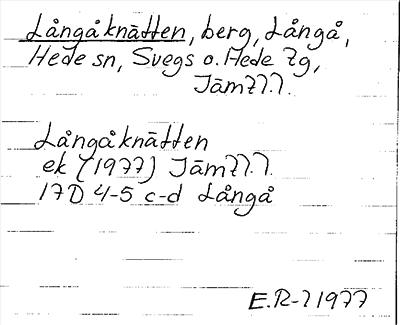 Långåknätten, berg, Långå,
Hede sn, Svegs o. Hede tg,
Jämtl.
Långåknätten
ek (1977) Jämtl.
17D 4-5 c-d Långå
E.R-l 1977